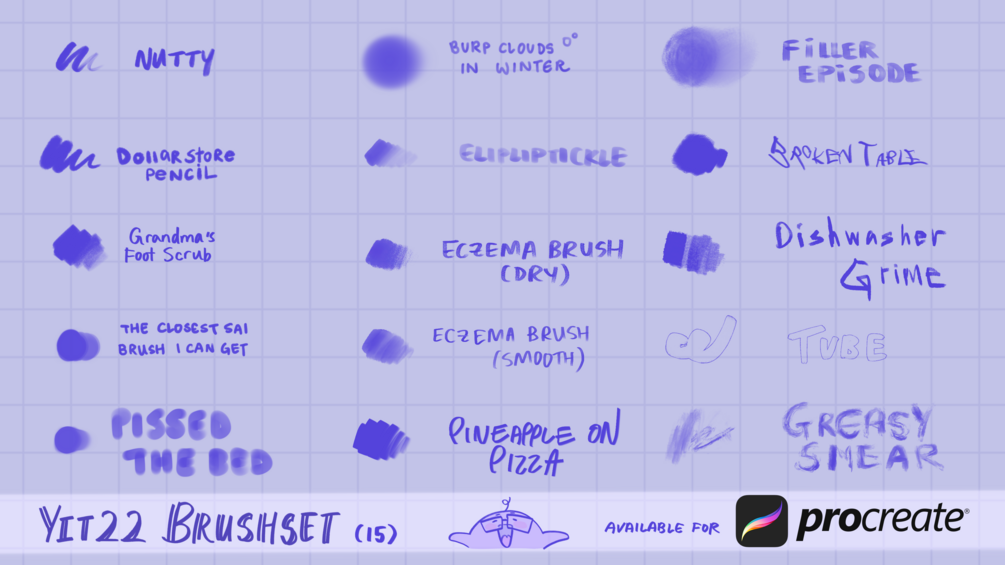 NUTTY
BURP CLOUDS
IN WINTER
FILLER
EPISODE
Dollarstore
PENCIL
ELIPLIPTICKLE
BROKEN TABLE
Grandma's
Foot Scrub
ECZEMA BRUSH
(DRY)
Dishwasher
Grime
THE CLOSEST SAI
BRUSH I CAN GET
ECZEMA BRUSH
(SMOOTH)
TUBE
PISSED
THE BED
PINEAPPLE ON
PIZZA
GREASY
SMEAR
YIT22 BRUSHSET (15)
AVAILABLE FOR
procreate®